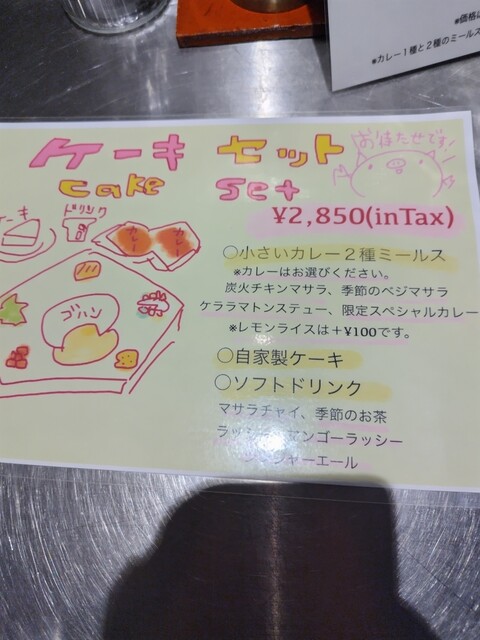 ※価格は
※カレー１種と２種のミールス
ケーキ セット
おまたせです!
cake set
¥2,850(inTax)
ーキ
ドリンク
カレー
カレー
ゴハン
○小さいカレー２種ミールス
※カレーはお選びください。
炭火チキンマサラ、季節のベジマサラ
ケララマトンステュー、限定スペシャルカレー
※レモンライスは＋¥100です。
○自家製ケーキ
○ソフトドリンク
マサラチャイ、季節のお茶
ラッシー、マンゴーラッシー
ジンジャーエール